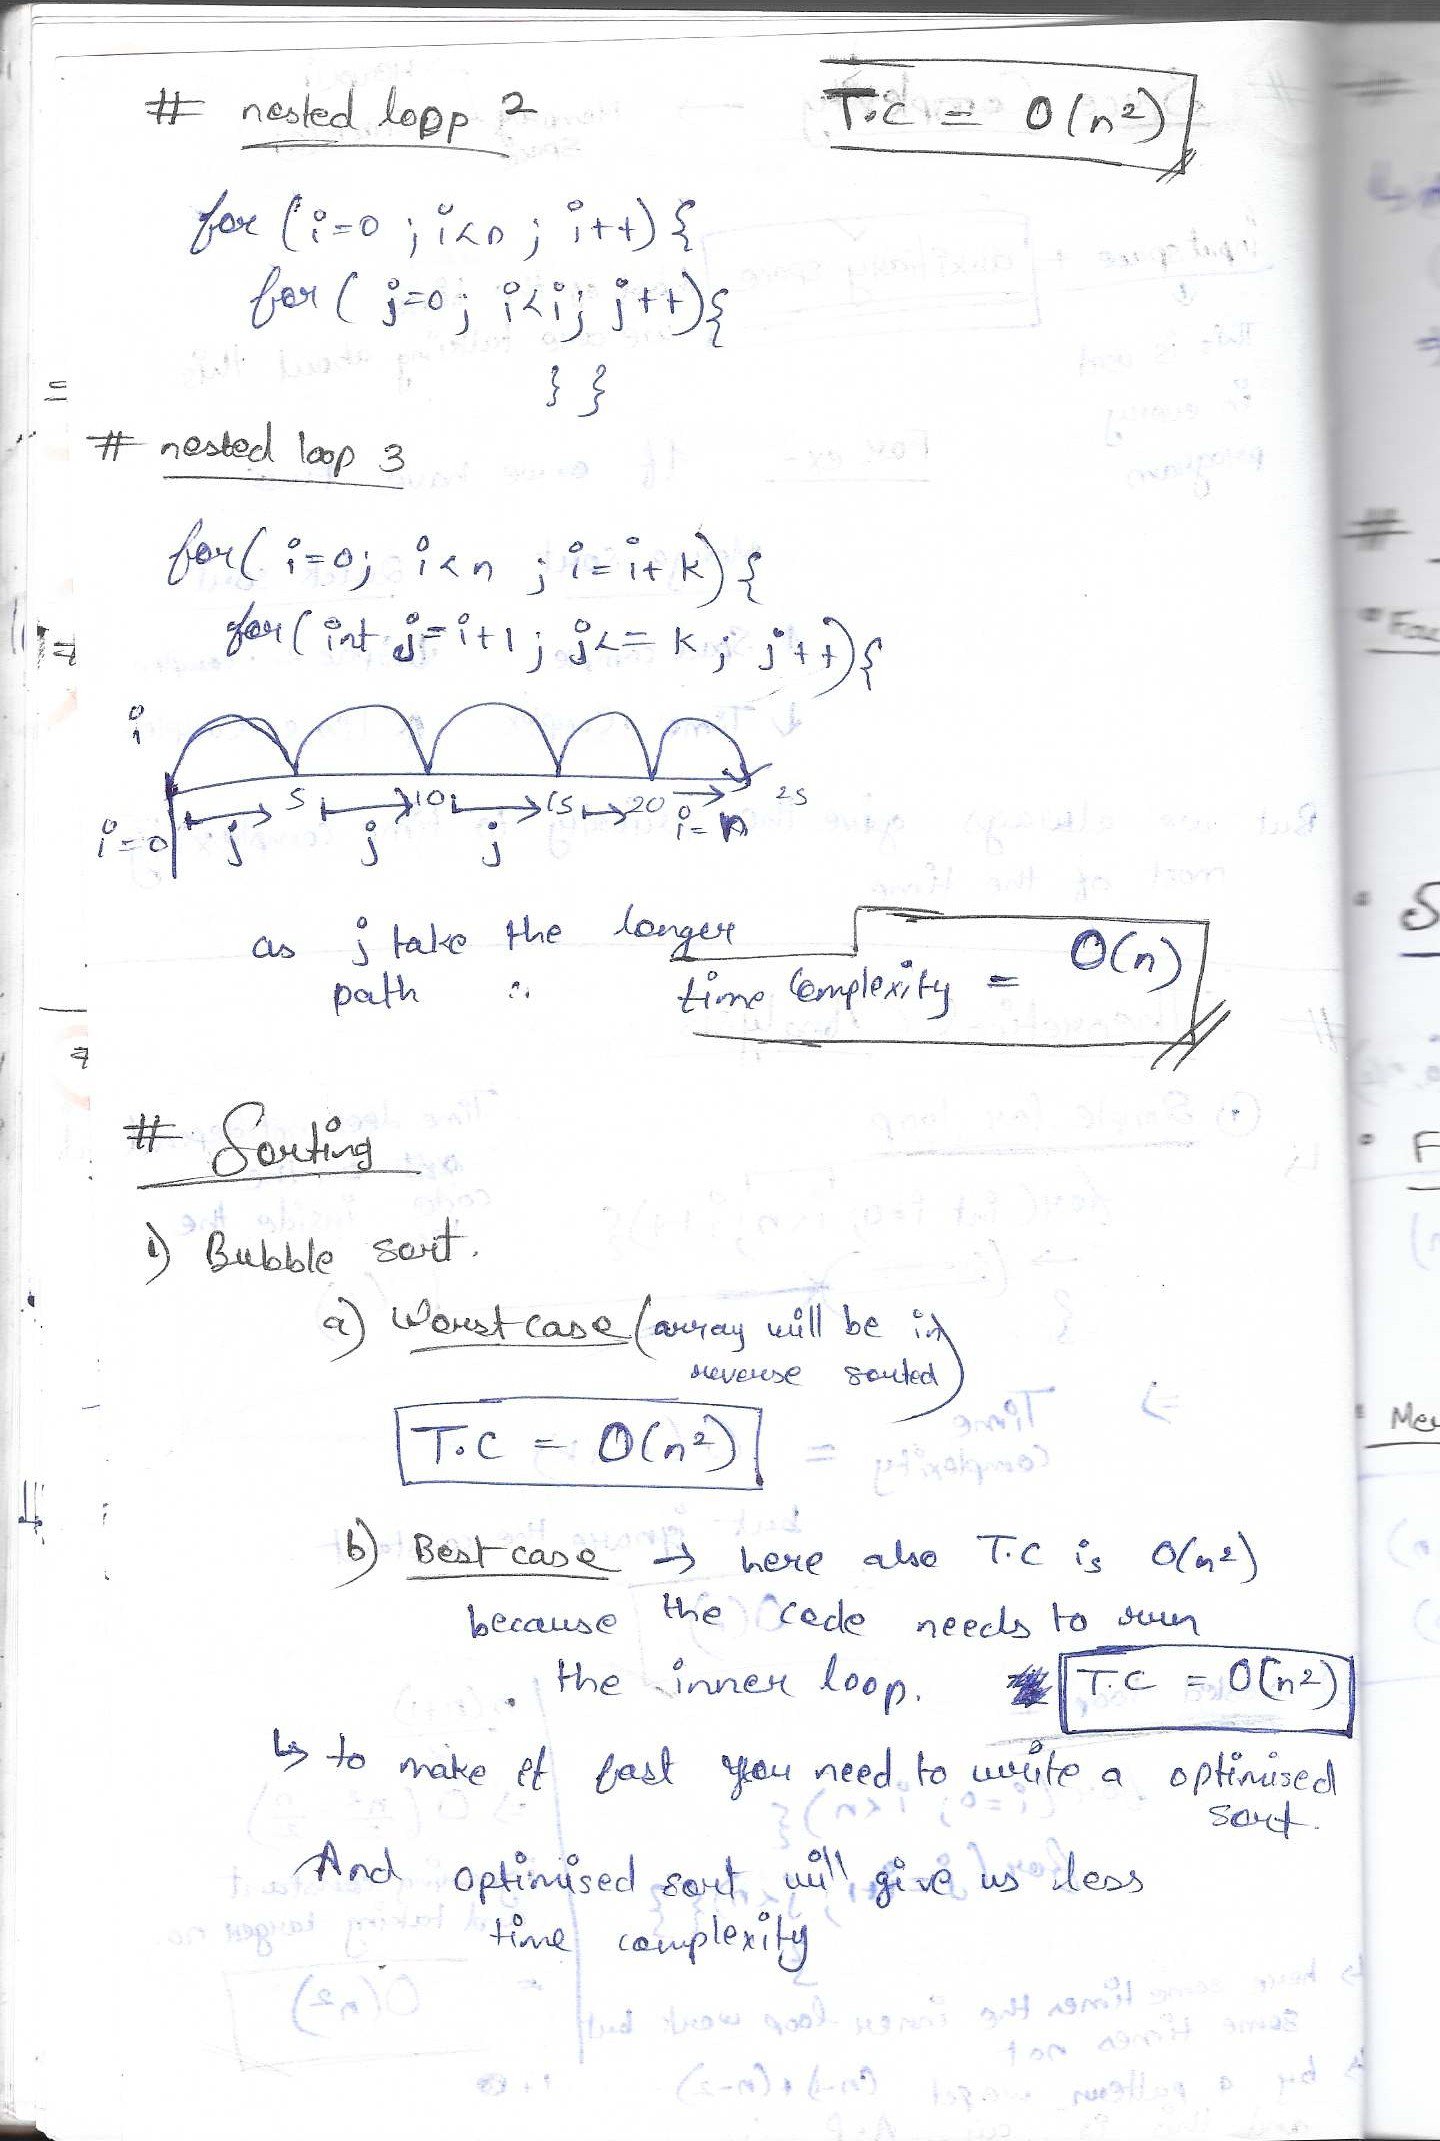 # nested loop 2
T.C = O(n²)
for (i=0 ; i<n ; i++) {
for ( j=0; i<i; j++){
} }
# nested loop 3
for( i=0; i<n ; i=i+k) {
for( int j=i+1; j<= k; j++){
i
i=0 5 10 15 20 i=n 25
j j j
as j take the longer
path ∴ time complexity = O(n)
# Sorting
1) Bubble sort.
a) Worst case (array will be in
reverse sorted)
T.C = O(n²)
b) Best case → here also T.C is O(n²)
because the code needs to run
the inner loop. T.C = O(n²)
↳ to make it fast you need to write a optimised
sort.
And optimised sort will give us less
time complexity